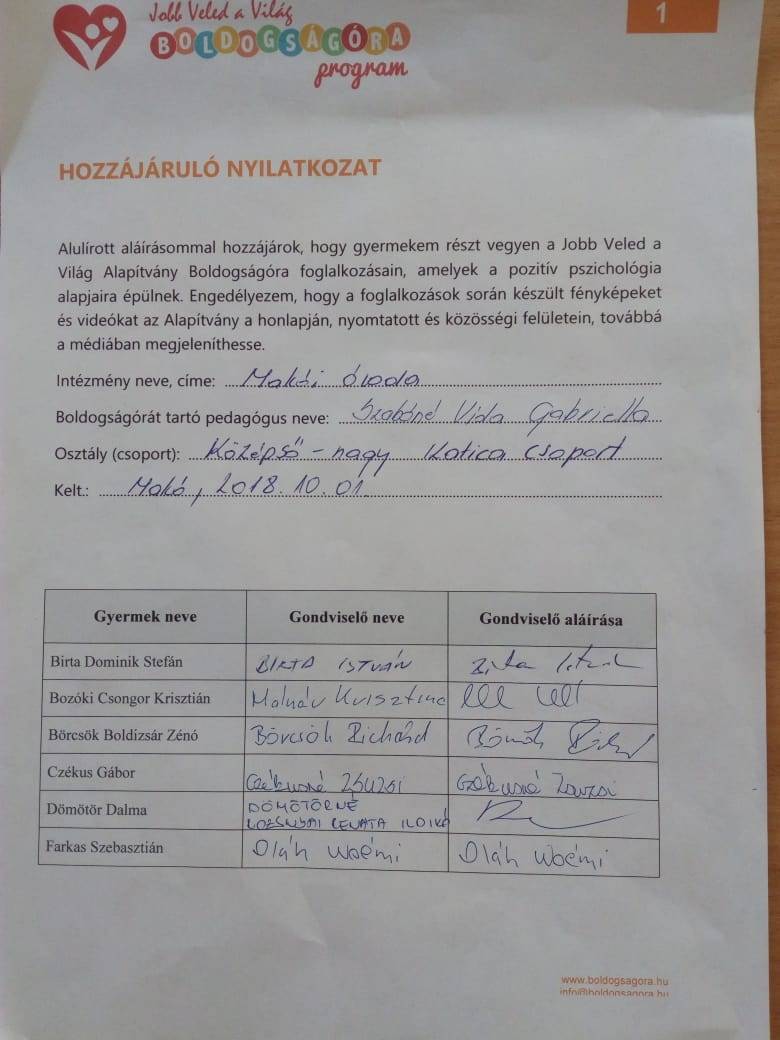 Jobb Veled a Világ
BOLDOGSÁGÓRA
program
1
HOZZÁJÁRULÓ NYILATKOZAT
Alulírott aláírásommal hozzájárok, hogy gyermekem részt vegyen a Jobb Veled a
Világ Alapítvány Boldogságóra foglalkozásain, amelyek a pozitív pszichológia
alapjaira épülnek. Engedélyezem, hogy a foglalkozások során készült fényképeket
és videókat az Alapítvány a honlapján, nyomtatott és közösségi felületein, továbbá
a médiában megjeleníthesse.
Intézmény neve, címe: Makói óvoda
Boldogságórát tartó pedagógus neve: Szabóné Vida Gabriella
Osztály (csoport): Középső - nagy Katica Csoport
Kelt.: Makó, 2018. 10. 01.
Gyermek neve Gondviselő neve Gondviselő aláírása
Birta Dominik Stefán BIRTA ISTVÁN
Bozóki Csongor Krisztián Molnár Krisztina
Börcsök Boldízsár Zénó Börcsök Richárd
Czékus Gábor Czékusné Zsuzsi Czékusné Zsuzsi
Dömötör Dalma DÖMÖTÖRNÉ
ROZSNYAI RENÁTA ILDIKÓ
Farkas Szebasztián Oláh Noémi Oláh Noémi
www.boldogsagora.hu
info@boldogsagora.hu